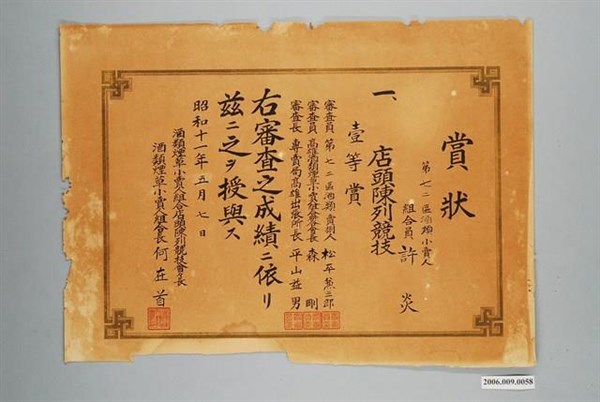 賞狀
第七二區酒類小賣人
組合員 許炎
一、店頭陳列競技
壹等賞
審査員 第七二區酒類賣捌人 松本 三郎
審査員 高雄酒類煙草小賣人組合會長 森 剛
審査長 專賣局高雄出張所長 平山益男
右審查之成績ニ依リ
茲ニ之ヲ授與ス
昭和十一年五月七日
酒類煙草小賣人組合店頭陳列競技會々長
酒類煙草小賣人組合會長 何在首
2006.009.0058